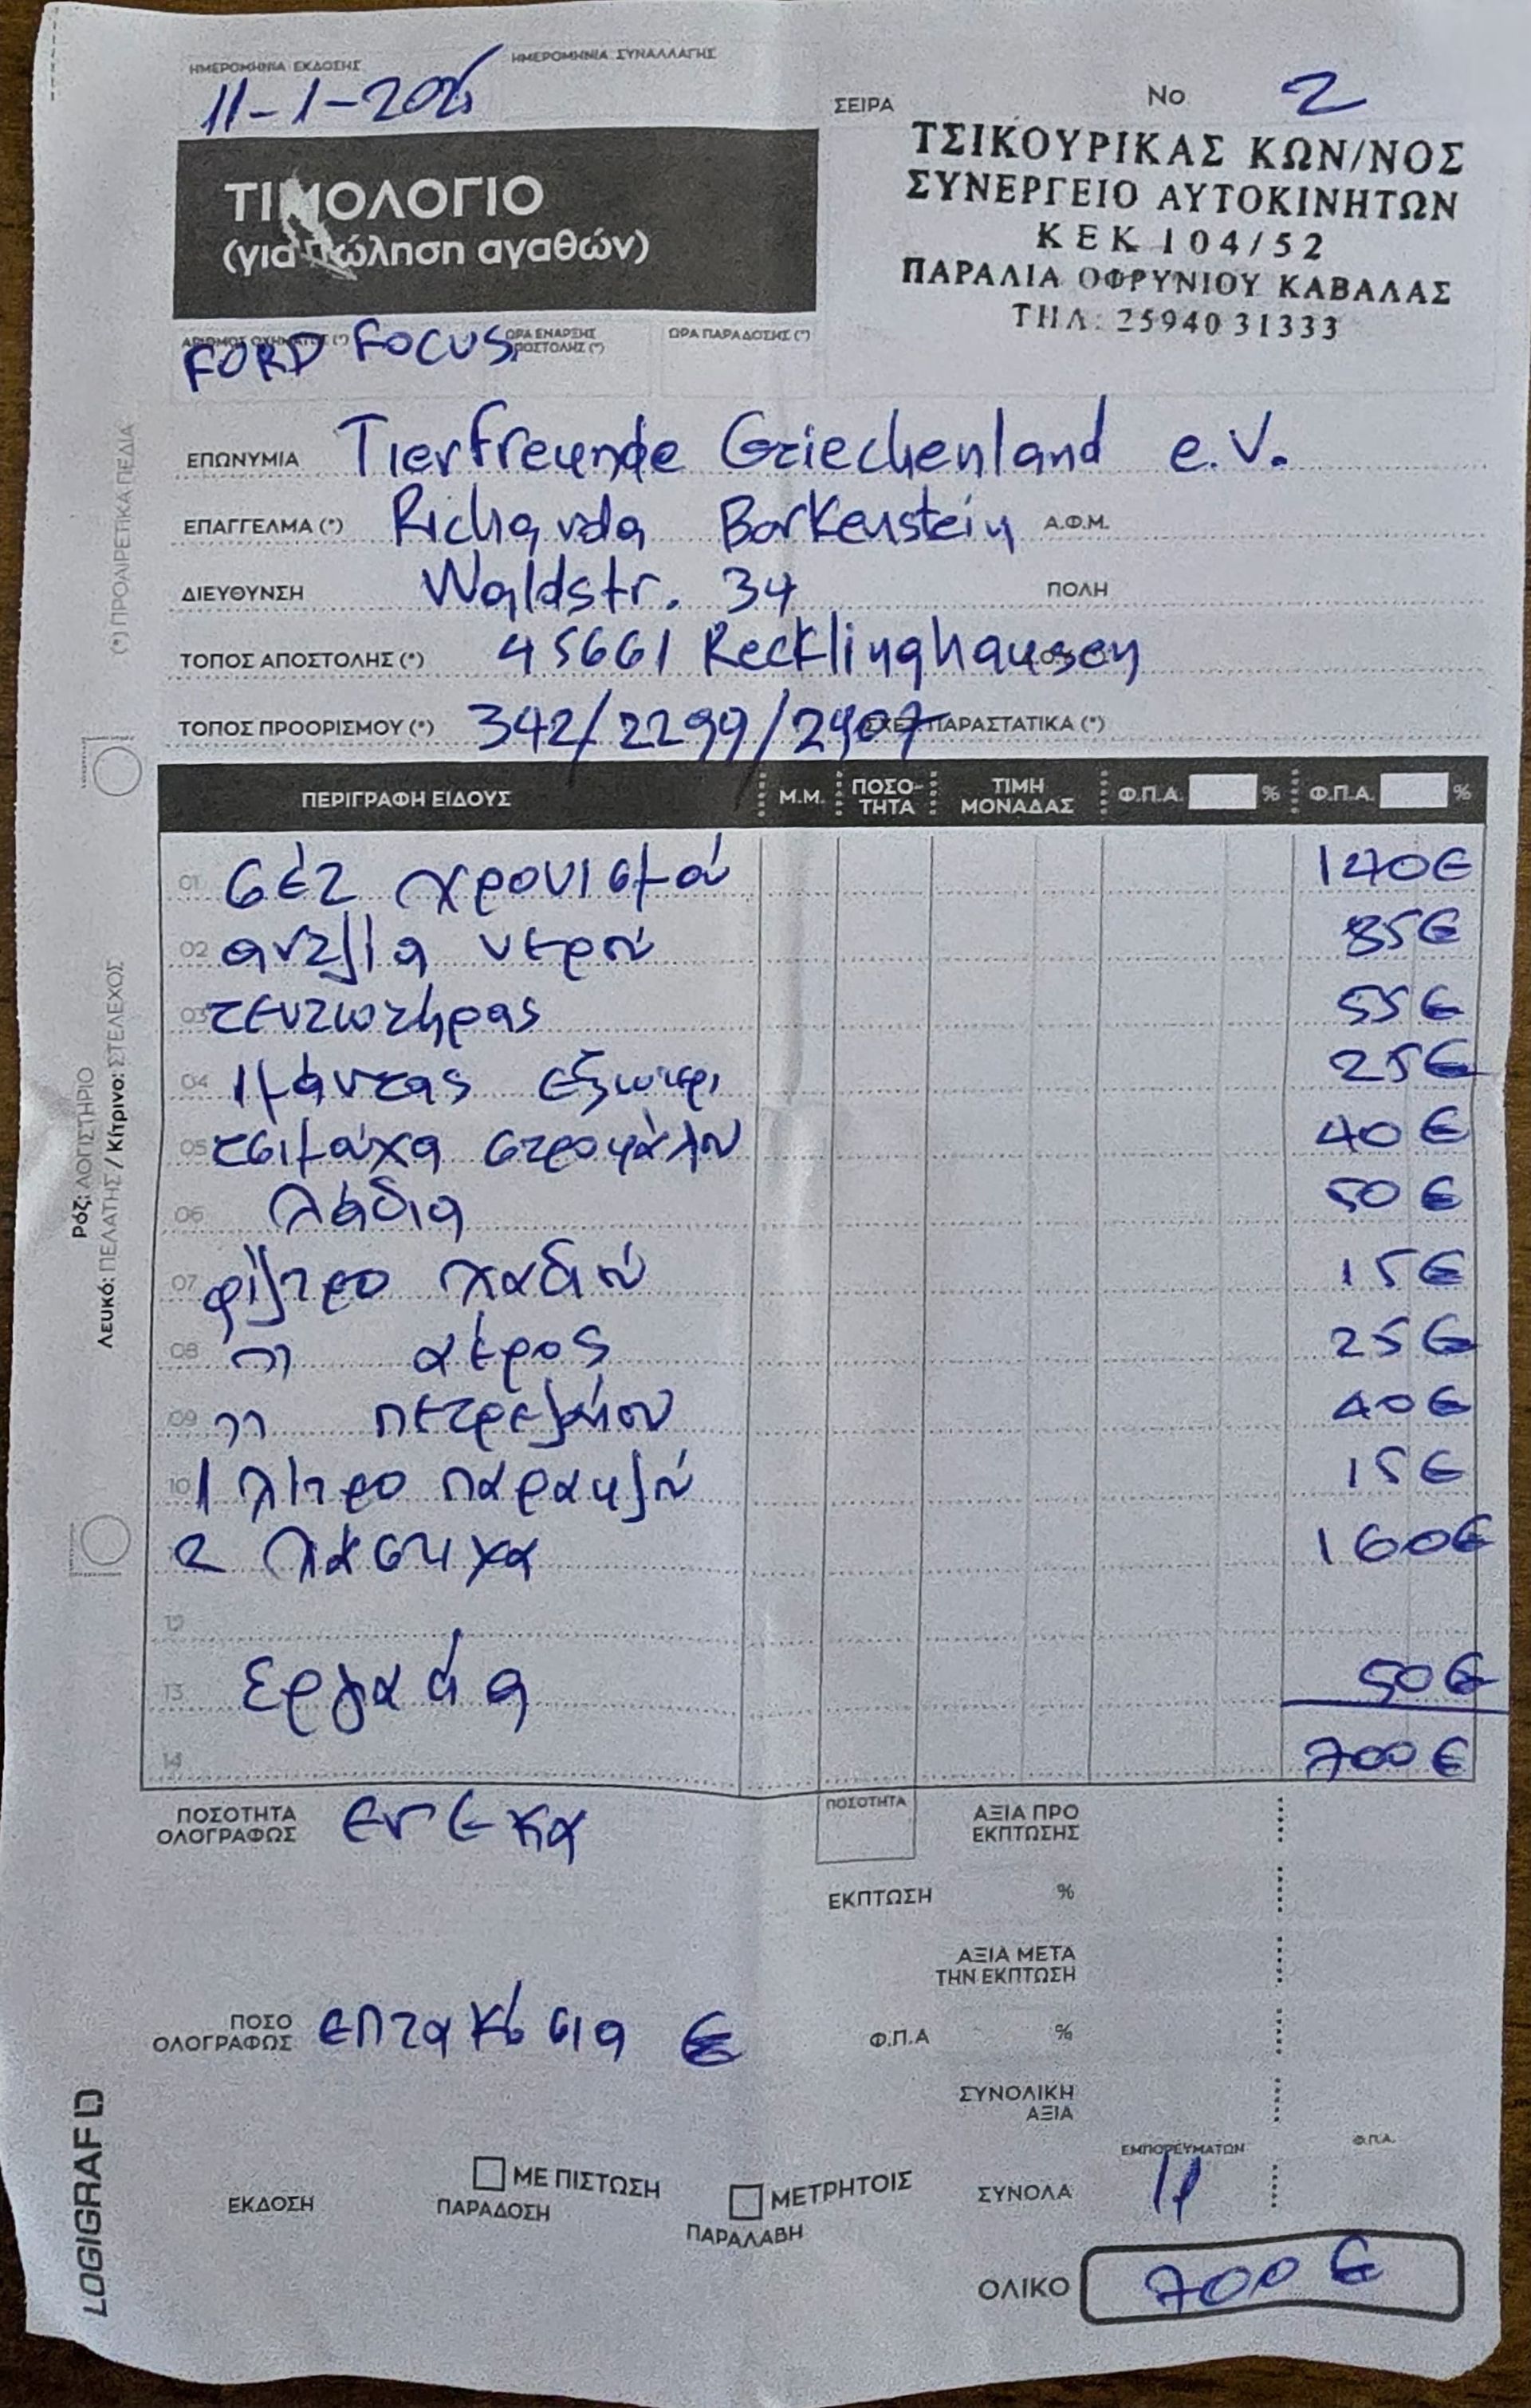 ΗΜΕΡΟΜΗΝΙΑ ΕΚΔΟΣΗΣ ΗΜΕΡΟΜΗΝΙΑ ΣΥΝΑΛΛΑΓΗΣ
11-1-2026
ΣΕΙΡΑ Νο 2
ΤΣΙΚΟΥΡΙΚΑΣ ΚΩΝ/ΝΟΣ
ΣΥΝΕΡΓΕΙΟ ΑΥΤΟΚΙΝΗΤΩΝ
ΚΕΚ 104/52
ΠΑΡΑΛΙΑ ΟΦΡΥΝΙΟΥ ΚΑΒΑΛΑΣ
ΤΗΛ: 25940 31333
ΤΙΜΟΛΟΓΙΟ
(για πώληση αγαθών)
ΑΡΙΘΜΟΣ ΟΧΗΜΑΤΟΣ (*) ΩΡΑ ΕΝΑΡΞΗΣ ΑΠΟΣΤΟΛΗΣ (*) ΩΡΑ ΠΑΡΑΔΟΣΗΣ (*)
FORD FOCUS
ΕΠΩΝΥΜΙΑ Tierfreunde Griechenland e.V.
ΕΠΑΓΓΕΛΜΑ (*) Richarda Borkenstein Α.Φ.Μ.
ΔΙΕΥΘΥΝΣΗ Waldstr. 34 ΠΟΛΗ
ΤΟΠΟΣ ΑΠΟΣΤΟΛΗΣ (*) 45661 Recklinghausen
ΤΟΠΟΣ ΠΡΟΟΡΙΣΜΟΥ (*) 342/2299/2907 ΣΧΕΤ. ΠΑΡΑΣΤΑΤΙΚΑ (*)
ΠΕΡΙΓΡΑΦΗ ΕΙΔΟΥΣ Μ.Μ. ΠΟΣΟ-ΤΗΤΑ ΤΙΜΗ ΜΟΝΑΔΑΣ Φ.Π.Α. % Φ.Π.Α. %
01 σέτ χρονισμού 140€
02 αντλία νερού 85€
03 τεντωτήρας 55€
04 ιμάντας εξωτερι 25€
05 τσιμούχα στροφάλου 40€
06 λάδια 50€
07 φίλτρο λαδιού 15€
08 〃 αέρος 25€
09 〃 πετρελαίου 40€
10 1 λίτρο παραφλού 15€
2 λάστιχα 160€
12
13 εργασία 50€
14 700€
ΠΟΣΟΤΗΤΑ ΟΛΟΓΡΑΦΩΣ εντεκα
ΠΟΣΟΤΗΤΑ ΑΞΙΑ ΠΡΟ ΕΚΠΤΩΣΗΣ
ΕΚΠΤΩΣΗ %
ΑΞΙΑ ΜΕΤΑ ΤΗΝ ΕΚΠΤΩΣΗ
ΠΟΣΟ ΟΛΟΓΡΑΦΩΣ επτακόσια €
Φ.Π.Α %
ΣΥΝΟΛΙΚΗ ΑΞΙΑ
ΕΜΠΟΡΕΥΜΑΤΩΝ Φ.Π.Α.
ΕΚΔΟΣΗ ΜΕ ΠΙΣΤΩΣΗ ΜΕΤΡΗΤΟΙΣ ΣΥΝΟΛΑ
ΠΑΡΑΔΟΣΗ ΠΑΡΑΛΑΒΗ
ΟΛΙΚΟ 700€
(*) ΠΡΟΑΙΡΕΤΙΚΑ ΠΕΔΙΑ
Ρόζ: ΛΟΓΙΣΤΗΡΙΟ
Λευκό: ΠΕΛΑΤΗΣ / Κίτρινο: ΣΤΕΛΕΧΟΣ
LOGIGRAF